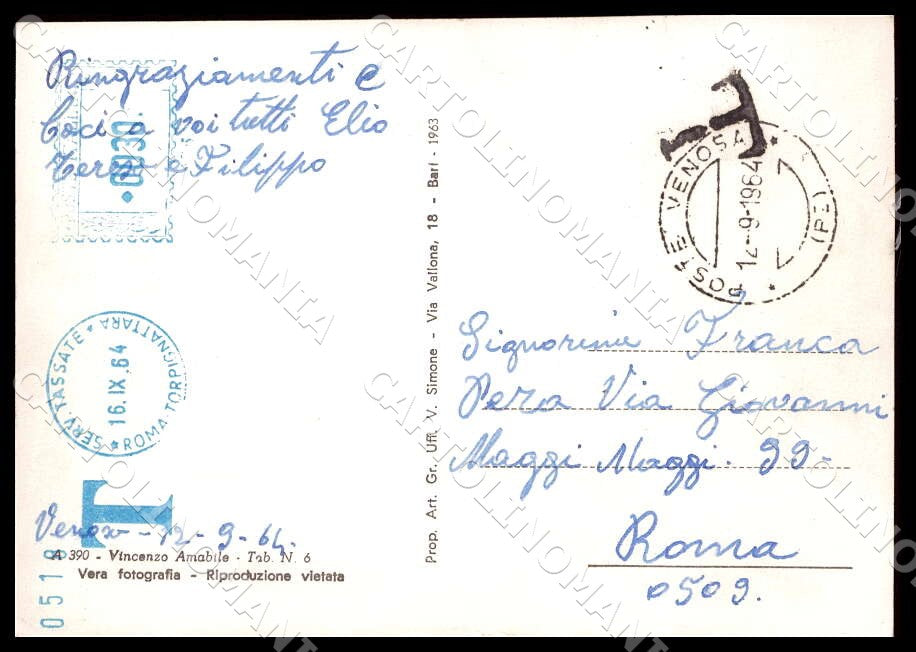 Ringraziamenti e
baci a voi tutti Elio
e Filippo
◆0030
SERV. TASSATE * ROMA-TORPIGNATTARA *
16.IX.64
T
Venosa - 12-9-64.
A 390 - Vincenzo Amabile - Tab. N. 6
Vera fotografia - Riproduzione vietata
0518
Prop. Art. Gr. Uff. V. Simone - Via Vallona, 18 - Bari - 1963
T
POSTE VENOSA * (PZ) *
12-9-1964
Signorine Franca
Via Giovanni
Maggi Maggi. 99-
Roma
0509.
CARTOLINOMANIA